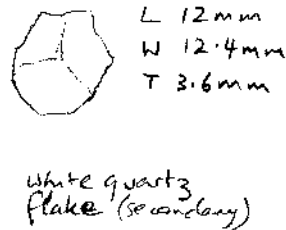 L 12mm
W 12.4mm
T 3.6mm
white quartz
flake (secondary)